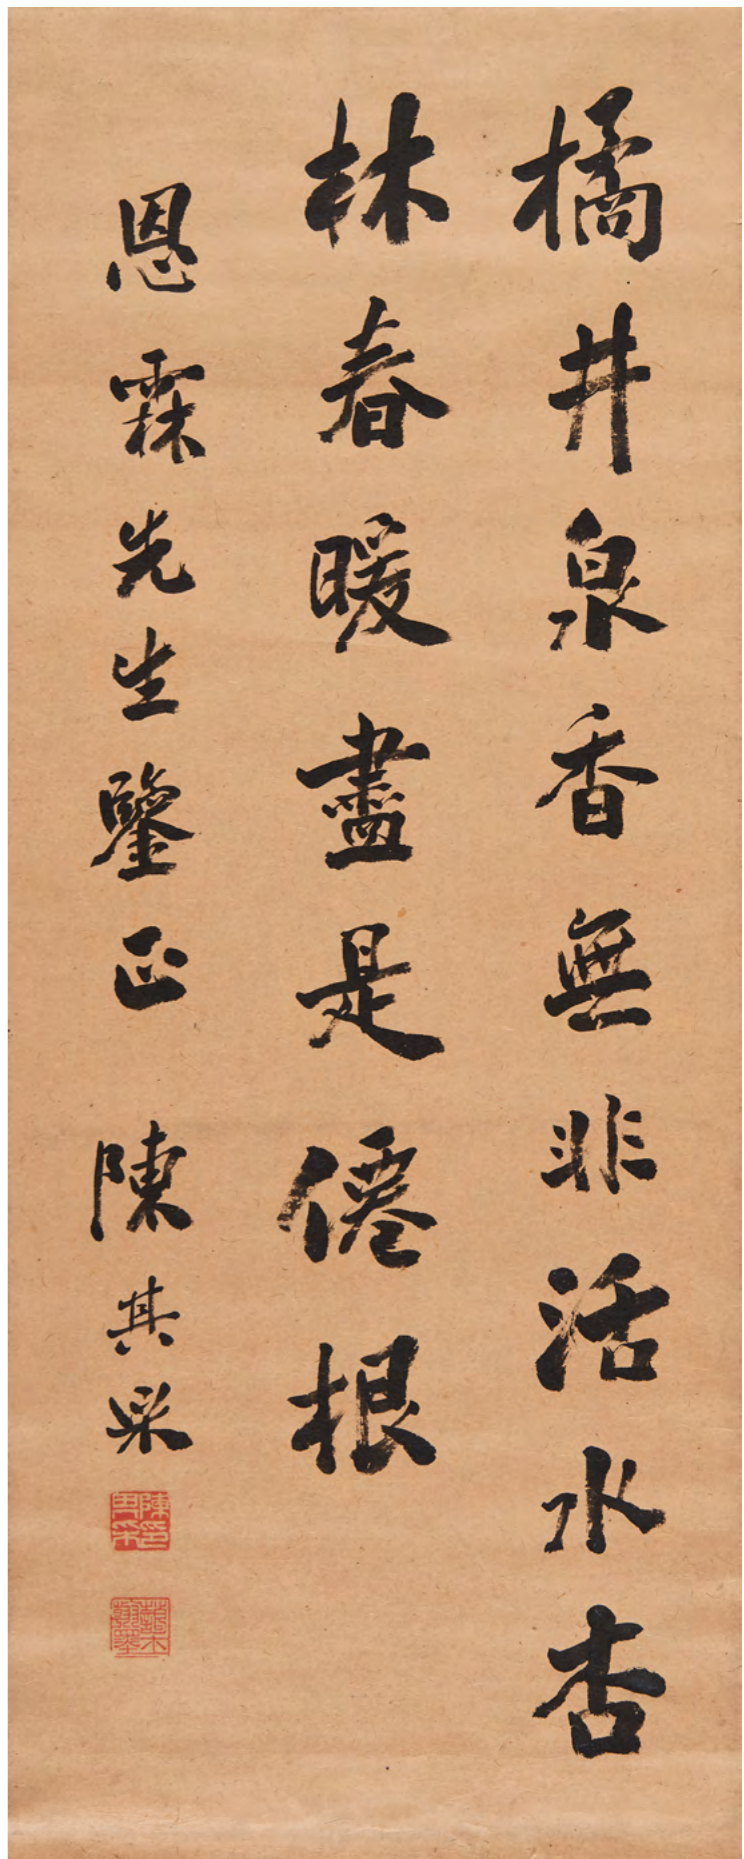 橘井泉香無非活水杏
林春暖盡是僊根
恩霖先生鑒正 陳其采
陳印其采
藹士翰墨